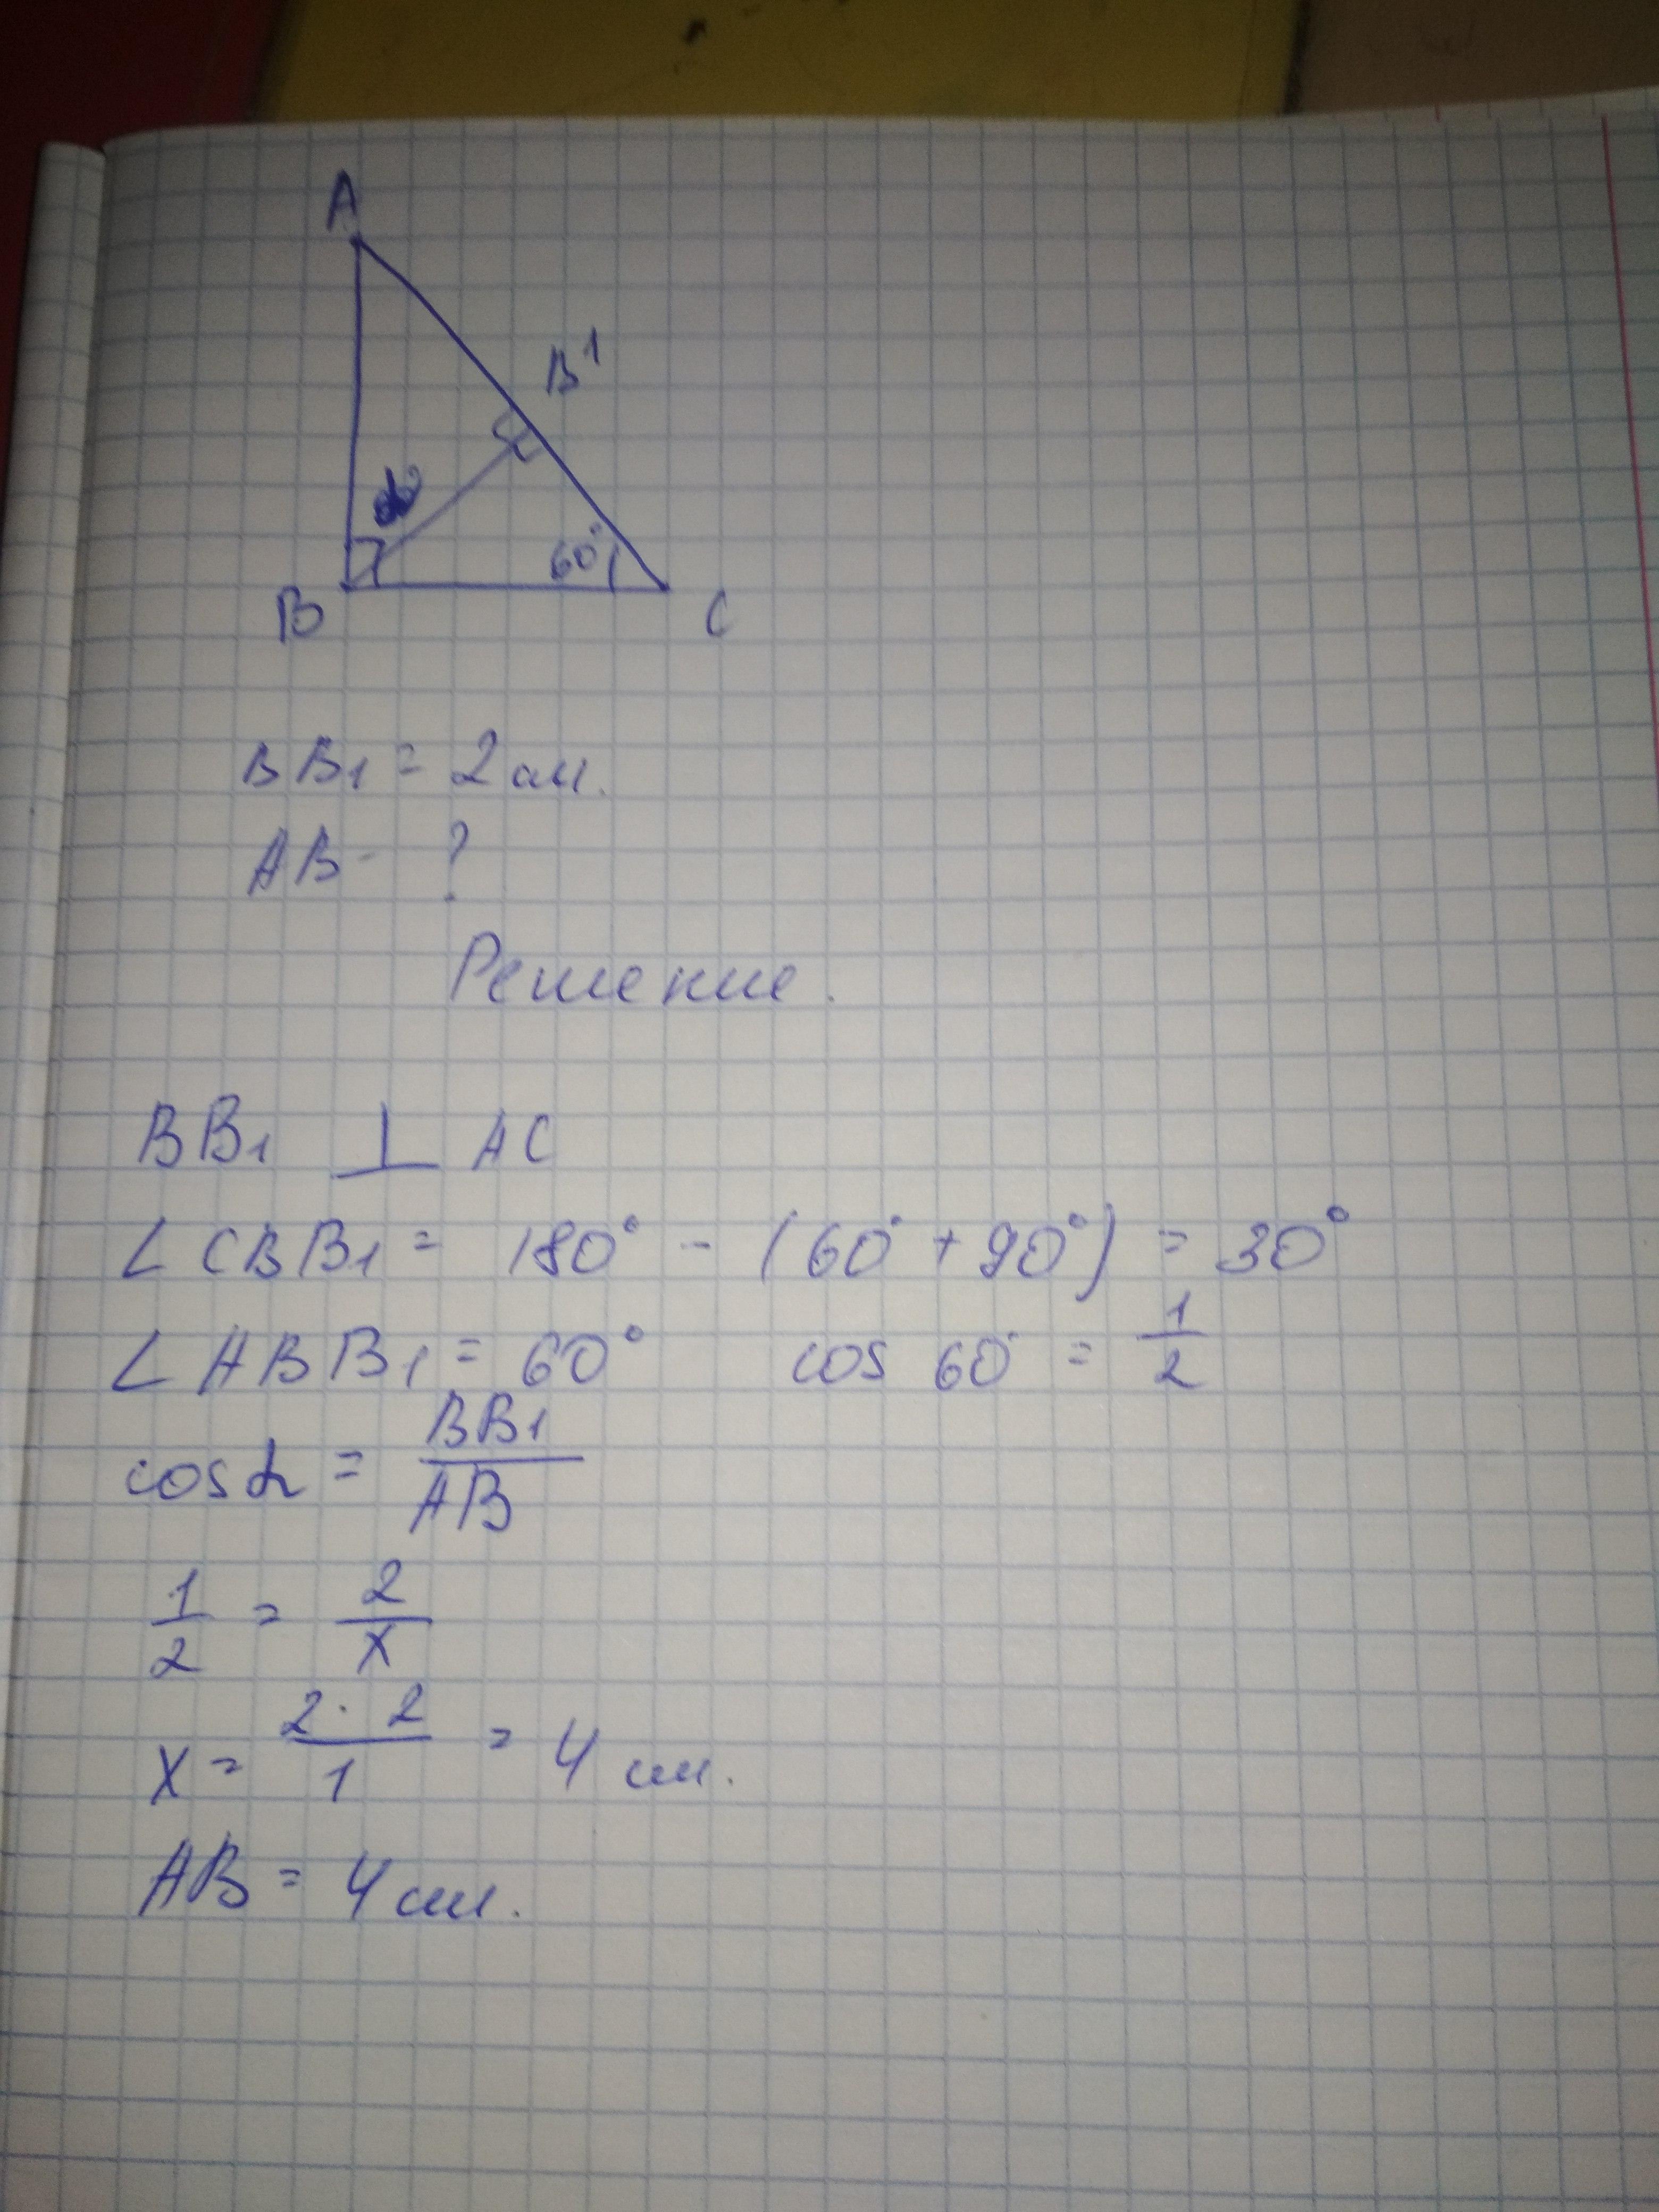 A
B¹
α
60°
B
C
BB₁ = 2 см.
AB - ?
Решение.
BB₁ ⊥ AC
∠CBB₁ = 180° - (60° + 90°) = 30°
∠ABB₁ = 60° cos 60° = 1/2
cos α = BB₁/AB
1/2 = 2/x
x = 2·2/1 = 4 см.
AB = 4 см.